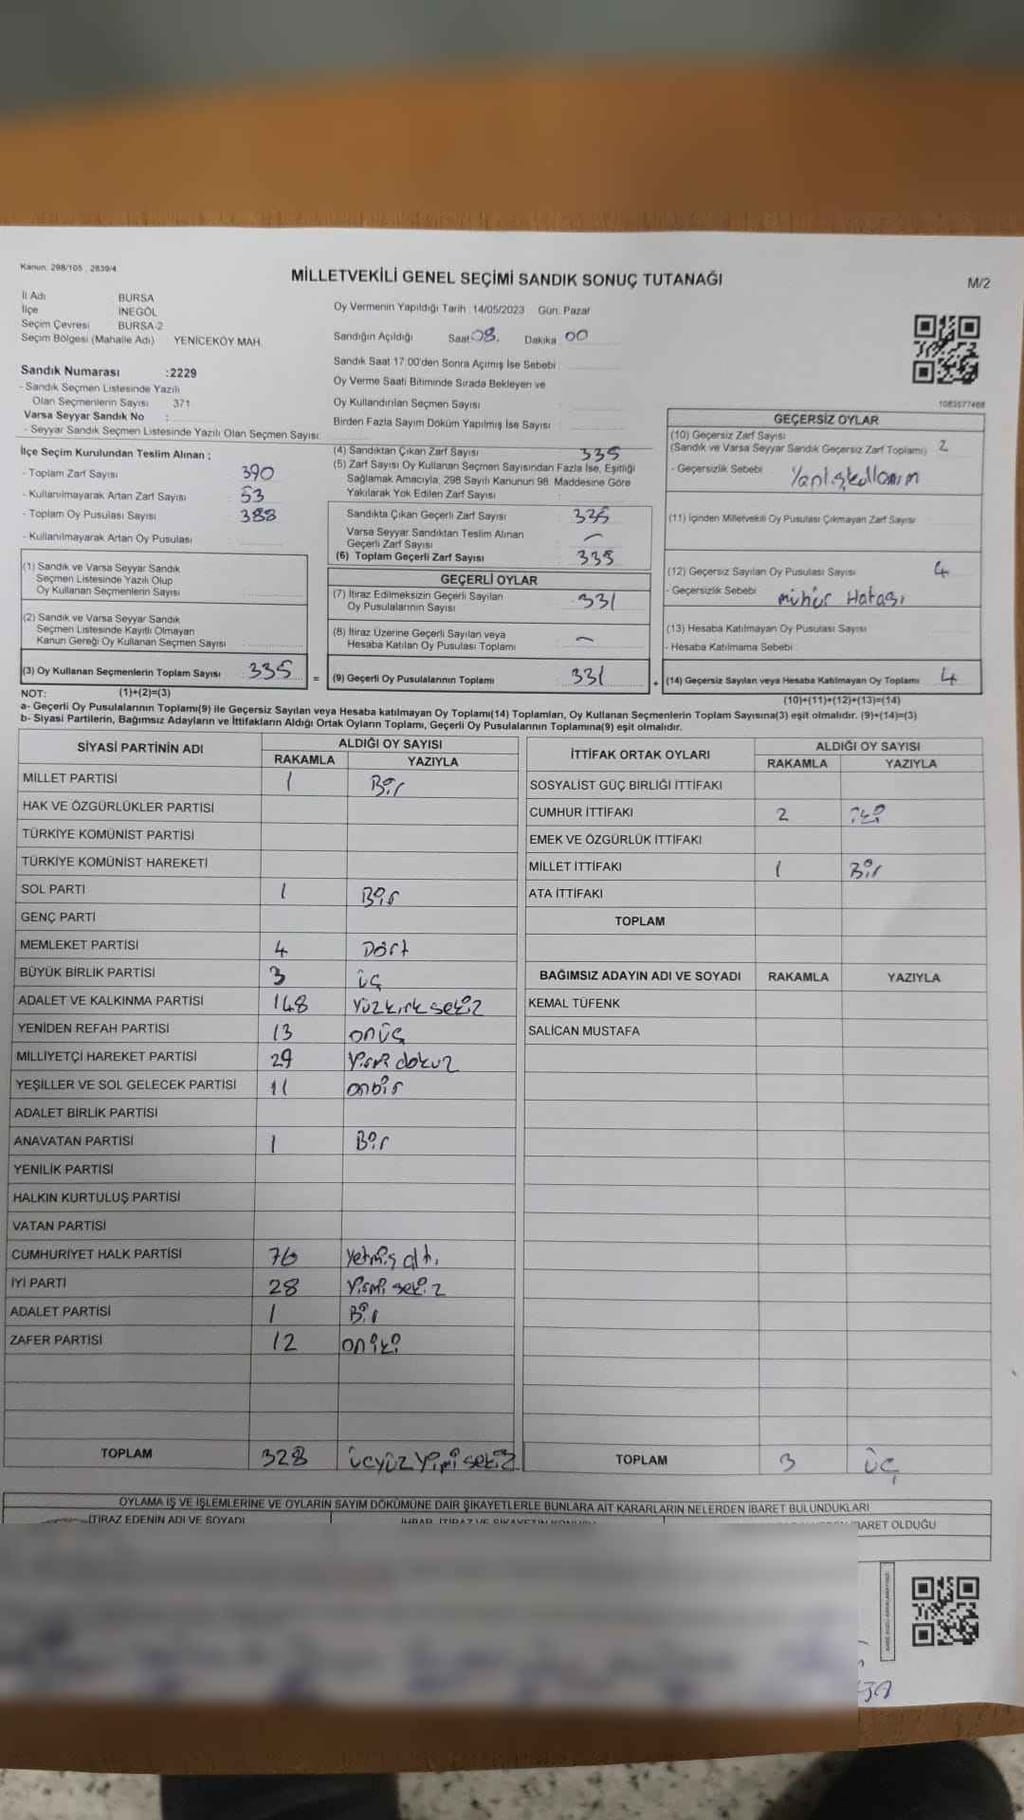 Kanun: 298/105 , 2839/4
MİLLETVEKİLİ GENEL SEÇİMİ SANDIK SONUÇ TUTANAĞI
M/2
İl Adı BURSA
İlçe İNEGÖL
Seçim Çevresi BURSA-2
Seçim Bölgesi (Mahalle Adı) YENİCEKÖY MAH.
Sandık Numarası :2229
- Sandık Seçmen Listesinde Yazılı
Olan Seçmenlerin Sayısı 371
Varsa Seyyar Sandık No :
- Seyyar Sandık Seçmen Listesinde Yazılı Olan Seçmen Sayısı:
İlçe Seçim Kurulundan Teslim Alınan ;
- Toplam Zarf Sayısı 390
- Kullanılmayarak Artan Zarf Sayısı 53
- Toplam Oy Pusulası Sayısı 388
- Kullanılmayarak Artan Oy Pusulası
(1) Sandık ve Varsa Seyyar Sandık
Seçmen Listesinde Yazılı Olup
Oy Kullanan Seçmenlerin Sayısı
(2) Sandık ve Varsa Seyyar Sandık
Seçmen Listesinde Kayıtlı Olmayan
Kanun Gereği Oy Kullanan Seçmen Sayısı
(3) Oy Kullanan Seçmenlerin Toplam Sayısı 335 =
Oy Vermenin Yapıldığı Tarih : 14/05/2023 Gün: Pazar
Sandığın Açıldığı Saat 08. Dakika 00
Sandık Saat 17:00'den Sonra Açılmış İse Sebebi
Oy Verme Saati Bitiminde Sırada Bekleyen ve
Oy Kullandırılan Seçmen Sayısı
Birden Fazla Sayım Döküm Yapılmış İse Sayısı
(4) Sandıktan Çıkan Zarf Sayısı 335
(5) Zarf Sayısı Oy Kullanan Seçmen Sayısından Fazla İse, Eşitliği
Sağlamak Amacıyla, 298 Sayılı Kanunun 98. Maddesine Göre
Yakılarak Yok Edilen Zarf Sayısı
Sandıkta Çıkan Geçerli Zarf Sayısı 335
Varsa Seyyar Sandıktan Teslim Alınan
Geçerli Zarf Sayısı –
(6) Toplam Geçerli Zarf Sayısı 335
GEÇERLİ OYLAR
(7) İtiraz Edilmeksizin Geçerli Sayılan
Oy Pusulalarının Sayısı 331
(8) İtiraz Üzerine Geçerli Sayılan veya
Hesaba Katılan Oy Pusulası Toplamı –
(9) Geçerli Oy Pusulalarının Toplamı 331 +
1083577468
GEÇERSİZ OYLAR
(10) Geçersiz Zarf Sayısı
(Sandık ve Varsa Seyyar Sandık Geçersiz Zarf Toplamı) 2
- Geçersizlik Sebebi Yanlış kullanım
(11) İçinden Milletvekili Oy Pusulası Çıkmayan Zarf Sayısı
(12) Geçersiz Sayılan Oy Pusulası Sayısı 4
- Geçersizlik Sebebi mühür Hatası
(13) Hesaba Katılmayan Oy Pusulası Sayısı
- Hesaba Katılmama Sebebi
(14) Geçersiz Sayılan veya Hesaba Katılmayan Oy Toplamı 4
NOT: (1)+(2)=(3) (10)+(11)+(12)+(13)=(14)
a- Geçerli Oy Pusulalarının Toplamı(9) ile Geçersiz Sayılan veya Hesaba katılmayan Oy Toplamı(14) Toplamları, Oy Kullanan Seçmenlerin Toplam Sayısına(3) eşit olmalıdır. (9)+(14)=(3)
b- Siyasi Partilerin, Bağımsız Adayların ve İttifakların Aldığı Ortak Oyların Toplamı, Geçerli Oy Pusulalarının Toplamına(9) eşit olmalıdır.
SİYASİ PARTİNİN ADI ALDIĞI OY SAYISI
RAKAMLA YAZIYLA
MİLLET PARTİSİ 1 Bir
HAK VE ÖZGÜRLÜKLER PARTİSİ
TÜRKİYE KOMÜNİST PARTİSİ
TÜRKİYE KOMÜNİST HAREKETİ
SOL PARTİ 1 Bir
GENÇ PARTİ
MEMLEKET PARTİSİ 4 Dört
BÜYÜK BİRLİK PARTİSİ 3 üç
ADALET VE KALKINMA PARTİSİ 148 Yüzkırksekiz
YENİDEN REFAH PARTİSİ 13 onüç
MİLLİYETÇİ HAREKET PARTİSİ 29 Yirmi dokuz
YEŞİLLER VE SOL GELECEK PARTİSİ 11 onbir
ADALET BİRLİK PARTİSİ
ANAVATAN PARTİSİ 1 Bir
YENİLİK PARTİSİ
HALKIN KURTULUŞ PARTİSİ
VATAN PARTİSİ
CUMHURİYET HALK PARTİSİ 76 Yetmiş altı
İYİ PARTİ 28 Yirmi sekiz
ADALET PARTİSİ 1 Bir
ZAFER PARTİSİ 12 oniki
TOPLAM 328 üçyüz Yirmi sekiz
İTTİFAK ORTAK OYLARI ALDIĞI OY SAYISI
RAKAMLA YAZIYLA
SOSYALİST GÜÇ BİRLİĞİ İTTİFAKI
CUMHUR İTTİFAKI 2 iki
EMEK VE ÖZGÜRLÜK İTTİFAKI
MİLLET İTTİFAKI 1 Bir
ATA İTTİFAKI
TOPLAM
BAĞIMSIZ ADAYIN ADI VE SOYADI RAKAMLA YAZIYLA
KEMAL TÜFENK
SALİCAN MUSTAFA
TOPLAM 3 üç
OYLAMA İŞ VE İŞLEMLERİNE VE OYLARIN SAYIM DÖKÜMÜNE DAİR ŞİKAYETLERLE BUNLARA AİT KARARLARIN NELERDEN İBARET BULUNDUKLARI
İTİRAZ EDENİN ADI VE SOYADI
BARET OLDUĞU